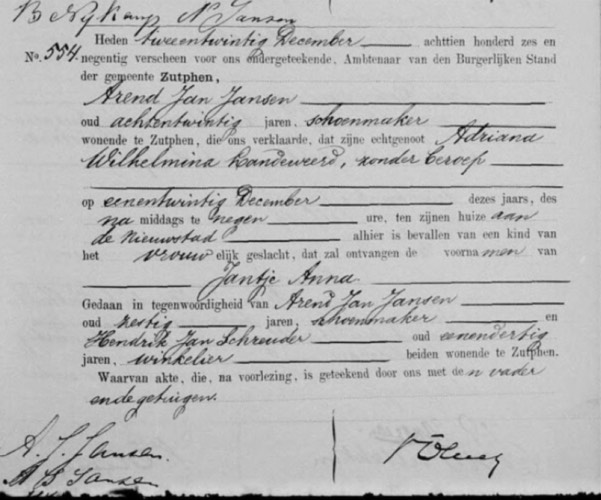 B Nijkamp N Jansen
Heden tweeentwintig December achttien honderd zes en
No. 554. negentig verscheen voor ons ondergeteekende, Ambtenaar van den Burgerlijken Stand
der gemeente Zutphen,
Arend Jan Jansen
oud achtentwintig jaren, schoenmaker
wonende te Zutphen, die ons verklaarde, dat zijne echtgenoot Adriana
Wilhelmina Landeweerd, zonder beroep
op eenentwintig December dezes jaars, des
na middags te negen ure, ten zijnen huize aan
de Nieuwstad alhier is bevallen van een kind van
het vrouwelijk geslacht, dat zal ontvangen de voornamen van
Jantje Anna
Gedaan in tegenwoordigheid van Arend Jan Jansen
oud zestig jaren, schoenmaker en
Hendrik Jan Schreuder oud eenendertig
jaren, winkelier beiden wonende te Zutphen.
Waarvan akte, die, na voorlezing, is geteekend door ons met den vader
en de getuigen.
A. J. Jansen.
Jansen